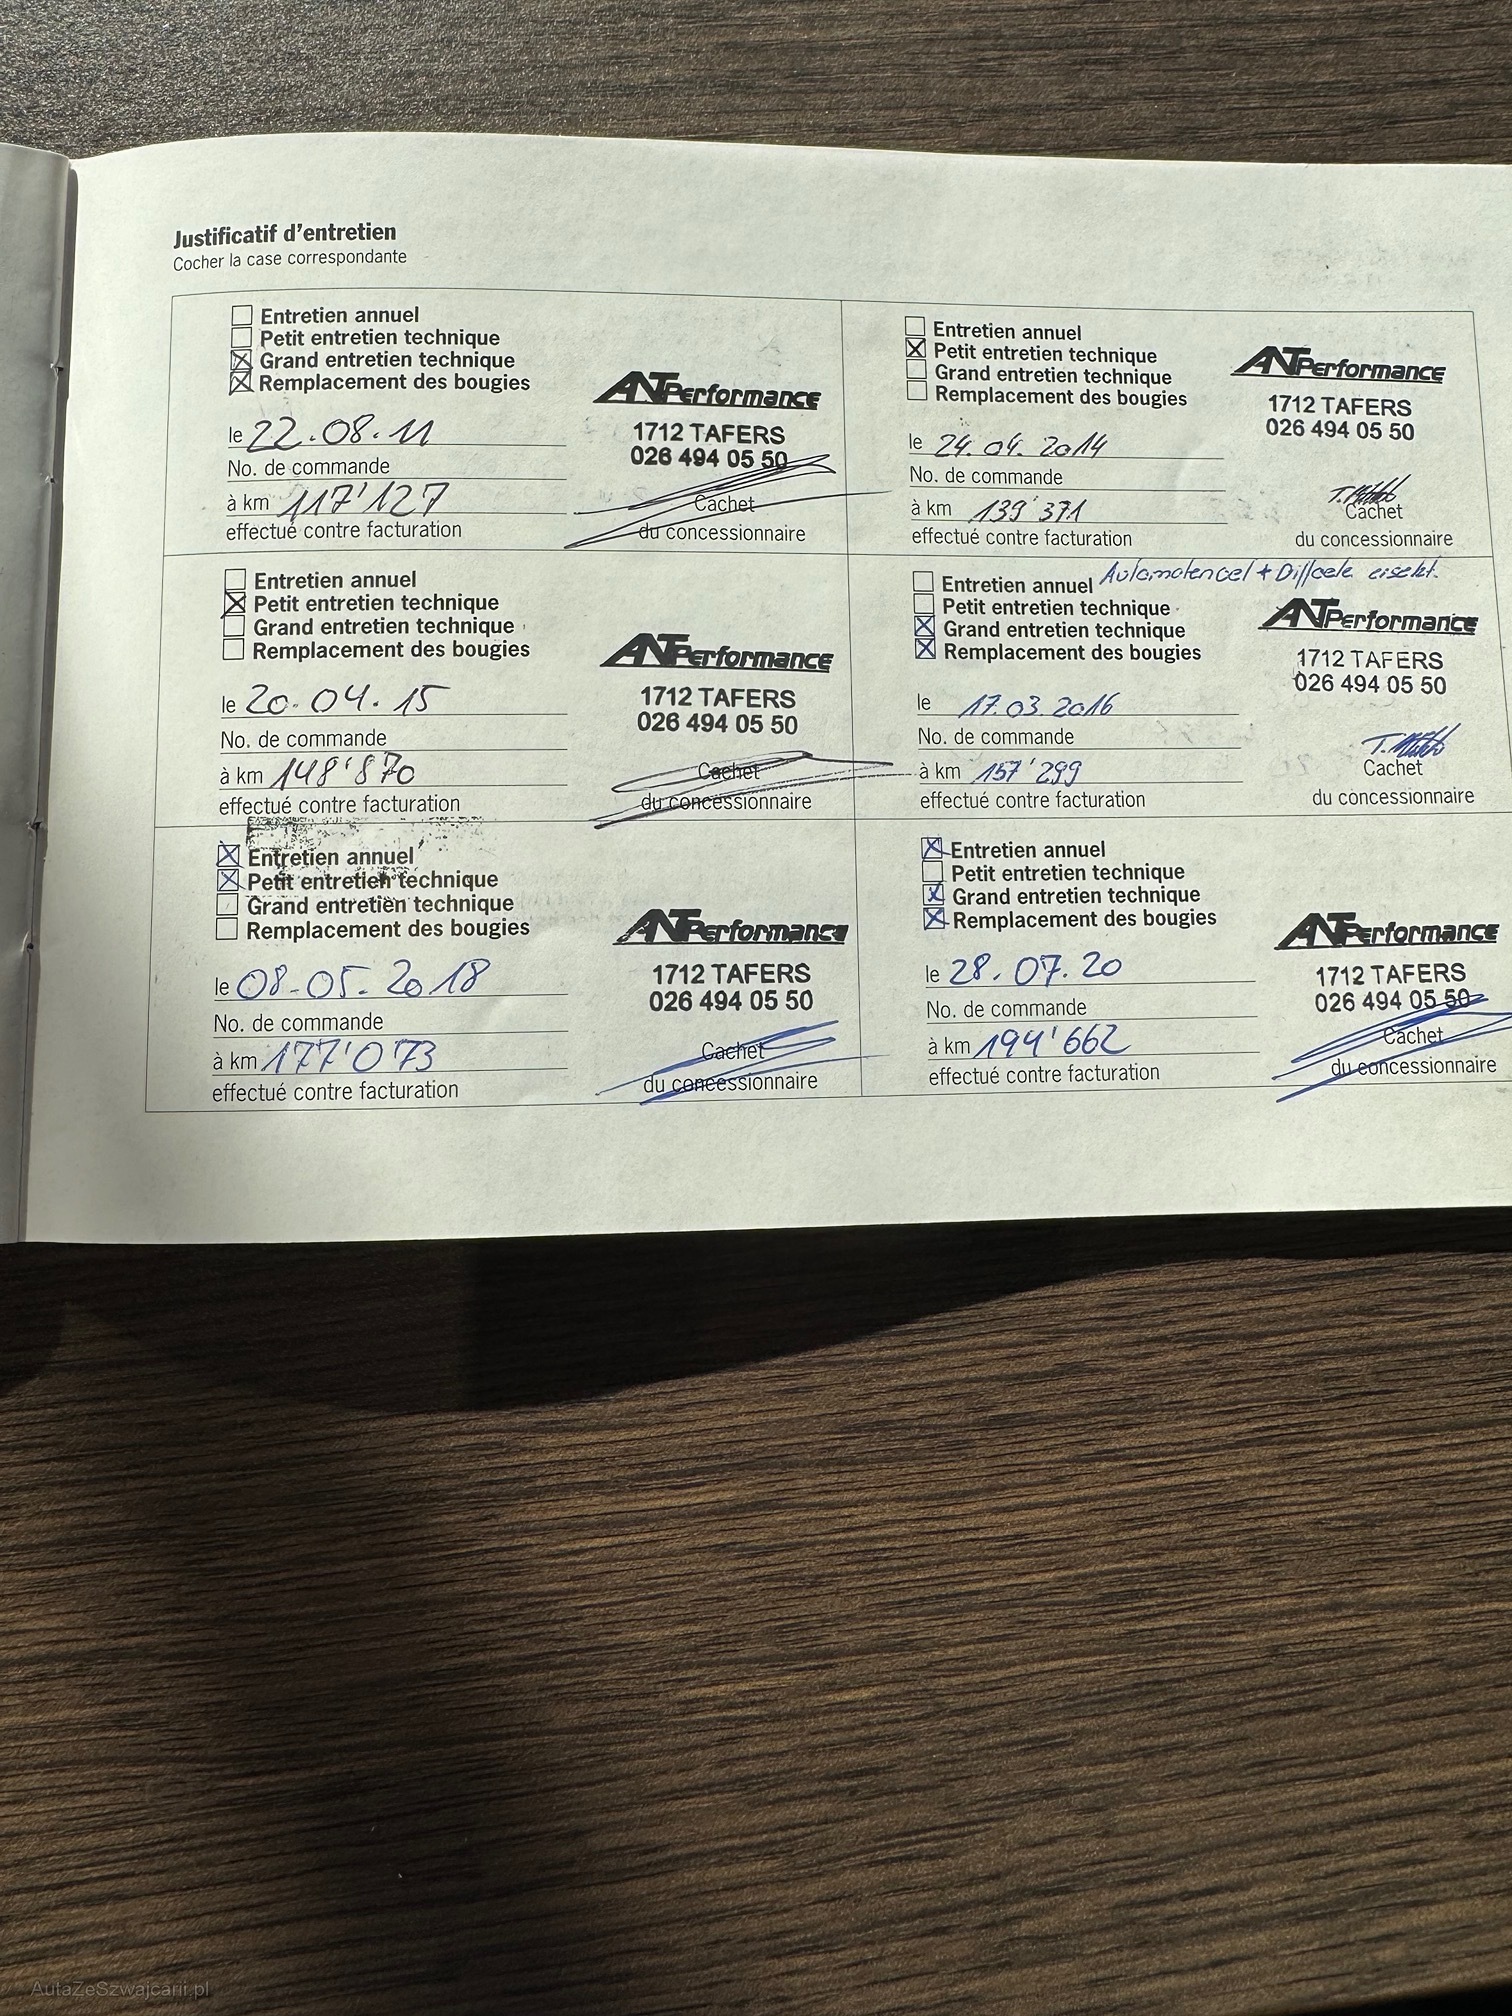 Justificatif d'entretien
Cocher la case correspondante
Entretien annuel
Petit entretien technique
Grand entretien technique
Remplacement des bougies
ANT Performance
1712 TAFERS
026 494 05 50
le 22.08.11
No. de commande
à km 117'127
effectué contre facturation
Cachet
du concessionnaire
Entretien annuel
Petit entretien technique
Grand entretien technique
Remplacement des bougies
ANT Performance
1712 TAFERS
026 494 05 50
le 24.04.2014
No. de commande
à km 139'371
effectué contre facturation
Cachet
du concessionnaire
Entretien annuel
Petit entretien technique
Grand entretien technique
Remplacement des bougies
ANT Performance
1712 TAFERS
026 494 05 50
le 20.04.15
No. de commande
à km 148'870
effectué contre facturation
Cachet
du concessionnaire
Entretien annuel
Petit entretien technique
Grand entretien technique
Remplacement des bougies
ANT Performance
1712 TAFERS
026 494 05 50
le 17.03.2016
No. de commande
à km 157'299
effectué contre facturation
Cachet
du concessionnaire
Entretien annuel
Petit entretien technique
Grand entretien technique
Remplacement des bougies
ANT Performance
1712 TAFERS
026 494 05 50
le 08.05.2018
No. de commande
à km 177'073
effectué contre facturation
Cachet
du concessionnaire
Entretien annuel
Petit entretien technique
Grand entretien technique
Remplacement des bougies
ANT Performance
1712 TAFERS
026 494 05 50
le 28.07.20
No. de commande
à km 194'662
effectué contre facturation
Cachet
du concessionnaire
AutaZeSzwajcarii.pl